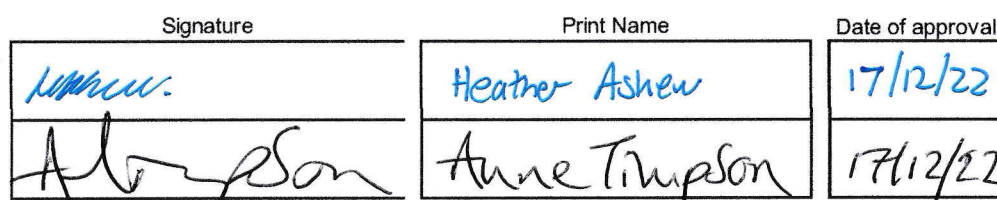 Signature Print Name Date of approval
Heather Ashew 17/12/22
A Timpson Anne Timpson 17/12/22